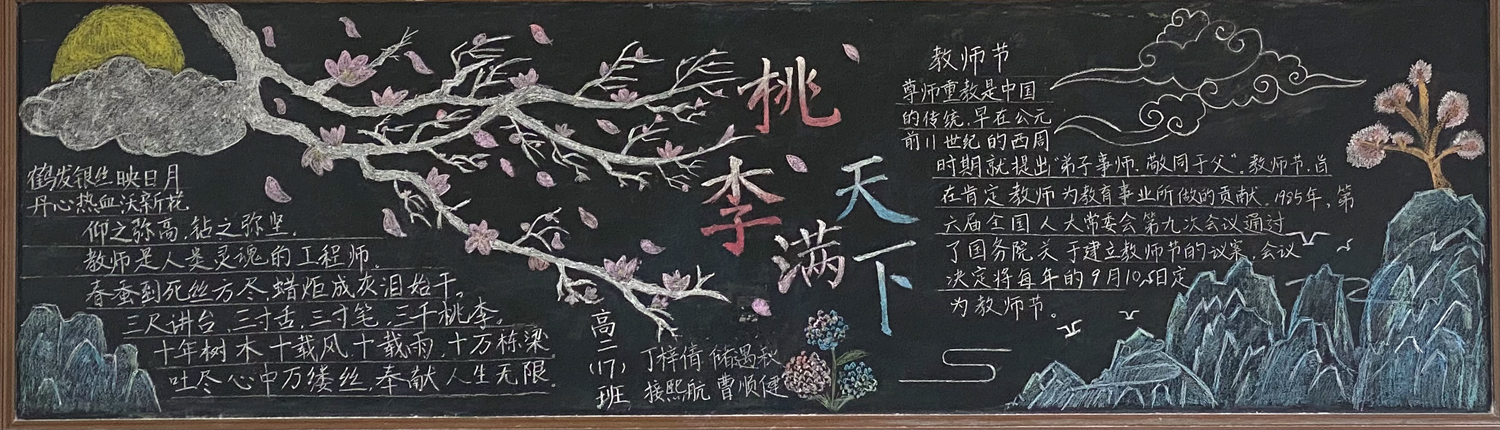 鹤发银丝映日月
丹心热血沃新花
仰之弥高,钻之弥坚.
教师是人类灵魂的工程师.
春蚕到死丝方尽,蜡炬成灰泪始干。
三尺讲台,三寸舌,三寸笔,三千桃李。
十年树木十载风,十载雨,十万栋梁.
吐尽心中万缕丝,奉献人生无限.
桃
李
满
天
下
高二(17)班
丁梓倩 储遇秋
接熙航 曹顺健
教师节
尊师重教是中国
的传统,早在公元
前11世纪的西周
时期就提出“弟子事师,敬同于父”。教师节,旨
在肯定教师为教育事业所做的贡献.1985年,第
六届全国人大常委会第九次会议通过
了国务院关于建立教师节的议案,会议
决定将每年的9月10日定
为教师节。